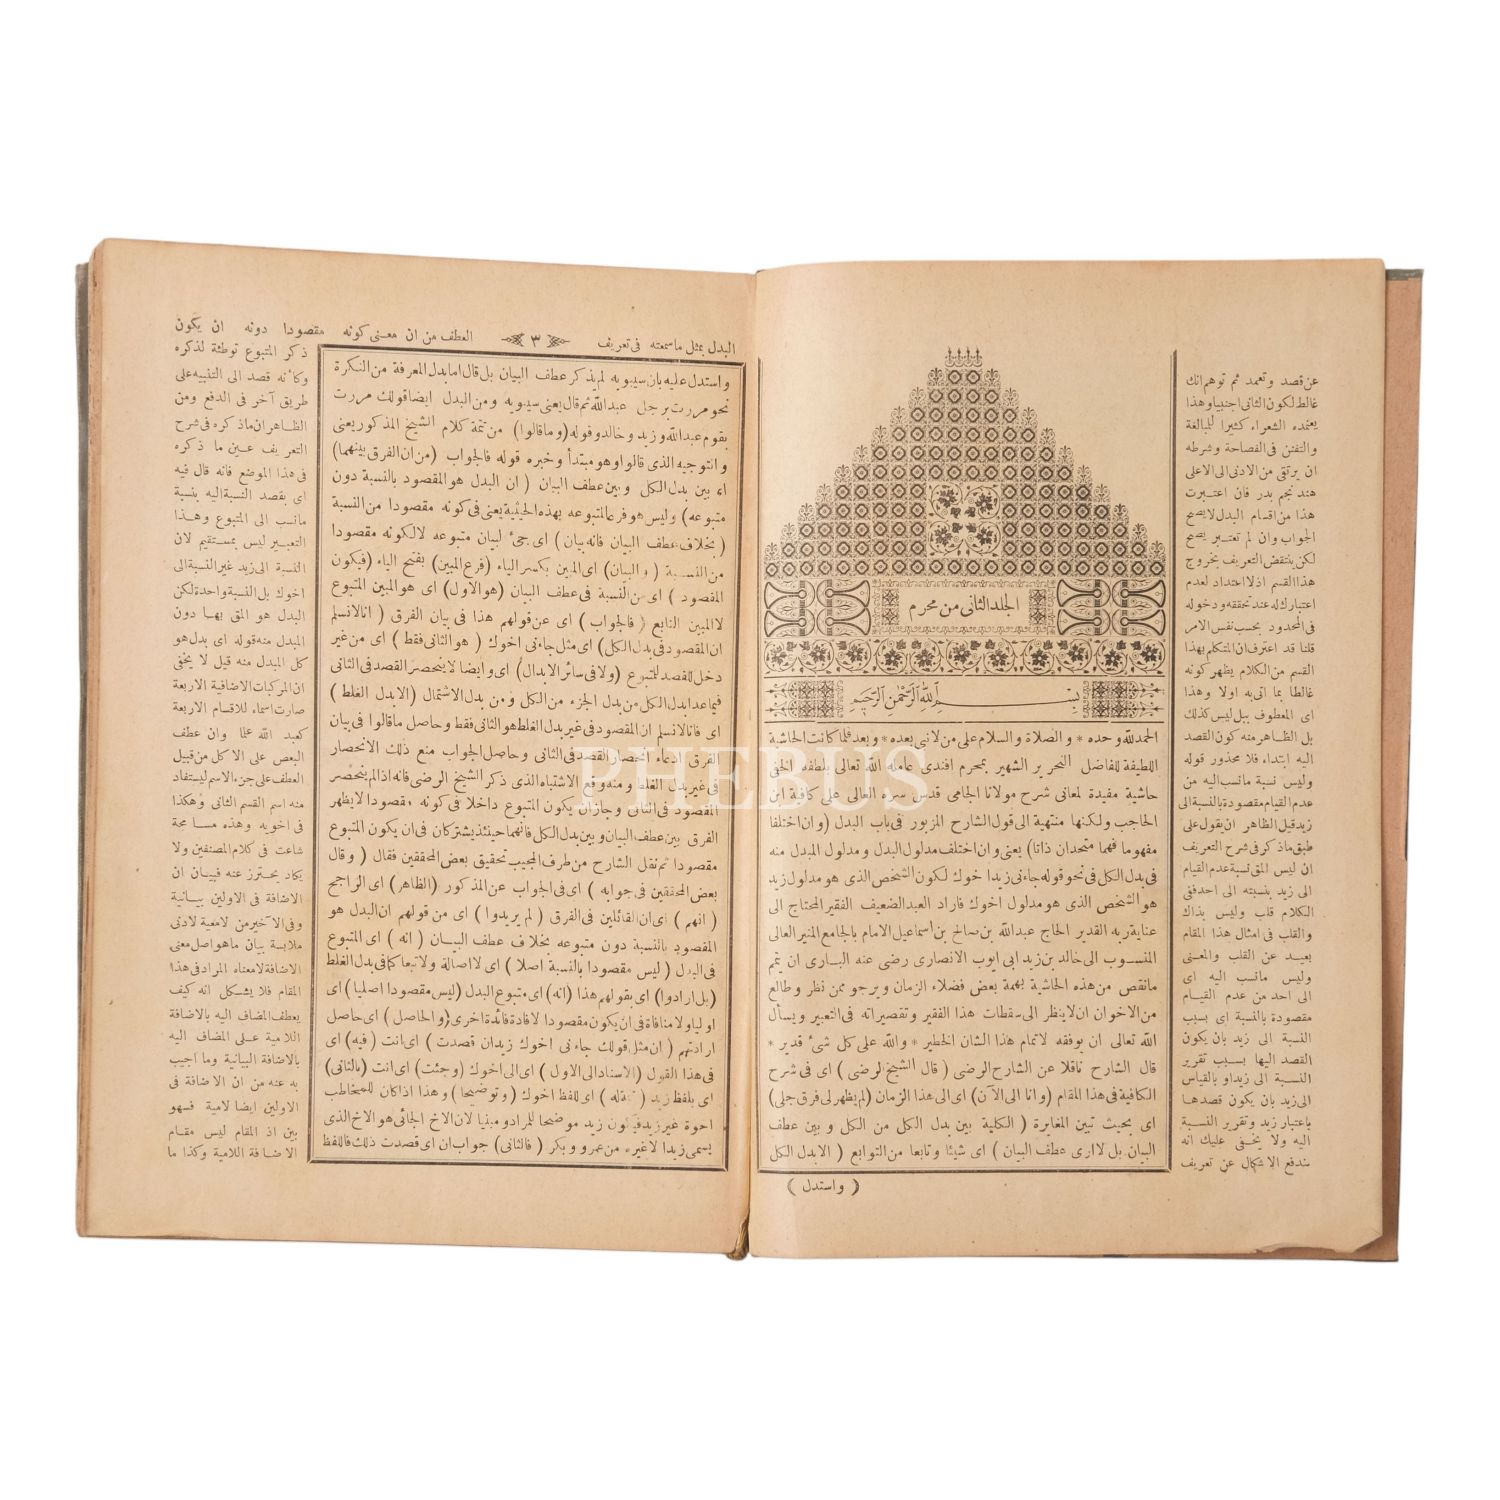 الجلد الثانى من محرم
بسم الله الرحمن الرحيم
الحمد لله وحده * والصلاة والسلام على من لا نبى بعده * وبعد فلما كانت الحاشية
اللطيفة للفاضل النحرير الشهير بمحرم افندى عامله الله تعالى بلطفه الخفى
حاشية مفيدة لمعانى شرح مولانا الجامى قدس سره العالى على كافية ابن
الحاجب ولكنها منتهية الى قول الشارح المزبور فى باب البدل (وان اختلفا
مفهوما فهما متحدان ذاتا) يعنى وان اختلف مدلول البدل ومدلول المبدل منه
فى بدل الكل فى نحو قوله جاءنى زيد اخوك لكون الشخص الذى هو مدلول زيد
هو الشخص الذى هو مدلول اخوك فاراد العبد الضعيف الفقير المحتاج الى
عناية ربه القدير الحاج عبدالله بن صالح بن اسماعيل الامام بالجامع المنير العالى
المنسوب الى خالد بن زيد ابى ايوب الانصارى رضى عنه البارى ان يتمم
مانقص من هذه الحاشية بهمة بعض فضلاء الزمان ويرجو ممن نظر وطالع
من الاخوان ان لاينظر الى سقطات هذا الفقير وتقصيراته فى التعبير ويسأل
الله تعالى ان يوفقه لاتمام هذا الشان الخطير * والله على كل شئ قدير *
قال الشارح ناقلا عن الشارح الرضى (قال الشيخ الرضى) اى فى شرح
الكافية فى هذا المقام (وانا الى الآن) اى الى هذا الزمان (لم يظهر لى فرق جلى)
اى بحيث تبين المغايرة (الكلية بين بدل الكل من الكل وبين عطف
البيان بل لا ارى عطف البيان) اى شيئا وتابعا من التوابع (الا بدل الكل
(واستدل)
عن قصد وتعمد ثم توهم انك
غالط لكون الثانى اجنبيا وهذا
يعتمده الشعراء كثيرا للمبالغة
والتفنن فى الفصاحة وشرطه
ان يرتقى من الادنى الى الاعلى
هند نجم بدر فان اعتبرت
هذا من اقسام البدل لا يصح
الجواب وان لم تعتبر يصح
لكن ينتقض التعريف بخروج
هذا القسم اذ لا اعتداد لعدم
اعتباره له عند تحققه ودخوله
فى المحدود بحسب نفس الامر
قلنا قد اعترف ان المتكلم بهذا
القسم من الكلام يظهر كونه
غالطا بما اتى به اولا وهذا
اى المعطوف ببل ليس كذلك
بل الظاهر منه كون القصد
اليه ابتداء فلا محذور قوله
وليس نسبة مانسب اليه من
عدم القيام مقصودة بالنسبة الى
زيد قيل الظاهر ان يقول على
طبق ماذكر فى شرح التعريف
ان ليس المق نسبة عدم القيام
الى زيد بنسبته الى احد ففى
الكلام قلب وليس بذاك
والقلب فى امثال هذا المقام
بعيد عن القلب والمعنى
وليس مانسب اليه اى
الى احد من عدم القيام
مقصودة بالنسبة اى بسبب
النسبة الى زيد بان يكون
القصد اليها بسبب تقرير
النسبة الى زيد او بالقياس
الى زيد بان يكون قصدها
باعتبار زيد وتقرير النسبة
اليه ولا يخفى عليك انه
يندفع الاشكال عن تعريف
البدل بمثل ماسمعته فى تعريف ٣ العطف من ان معنى كونه مقصودا دونه ان يكون
واستدل عليه بان سيبويه لم يذكر عطف البيان بل قال اما بدل المعرفة من النكرة
نحو مررت برجل عبدالله ثم قال يعنى سيبويه ومن البدل ايضا قولك مررت
بقوم عبدالله وزيد وخالد وقوله (وما قالوا) من تتمة كلام الشيخ المذكور يعنى
والتوجيه الذى قالوا وهو مبتدأ وخبره قوله فالجواب (من ان الفرق بينهما)
اى بين بدل الكل وبين عطف البيان (ان البدل هو المقصود بالنسبة دون
متبوعه) وليس هو فرعا لمتبوعه بهذه الحيثية يعنى فى كونه مقصودا من النسبة
(بخلاف عطف البيان فانه بيان) اى جئ لبيان متبوعه لا لكونه مقصودا
من النسبة (والبيان) اى المبين بكسر الياء (فرع المبين) بفتح الياء (فيكون
المقصود) اى من النسبة فى عطف البيان (هو الاول) اى هو المبين المتبوع
لا المبين التابع (فالجواب) اى عن قولهم هذا فى بيان الفرق (انا لا نسلم
ان المقصود فى بدل الكل) اى مثل جاءنى اخوك (هو الثانى فقط) اى من غير
دخل للقصد للمتبوع (ولا فى سائر الابدال) اى وايضا لا ينحصر القصد فى الثانى
فيما عدا بدل الكل من بدل الجزء من الكل ومن بدل الاشتمال (الا بدل الغلط)
اى فانا لا نسلم ان المقصود فى غير بدل الغلط هو الثانى فقط وحاصل ما قالوا فى بيان
الفرق ادعاء انحصار القصد فى الثانى وحاصل الجواب منع ذلك الانحصار
فى غير بدل الغلط ومنه وقع الاشتباه الذى ذكر الشيخ الرضى فانه اذا لم ينحصر
المقصود فى الثانى وجاز ان يكون المتبوع داخلا فى كونه مقصودا لا يظهر
الفرق بين عطف البيان وبين بدل الكل فانهما حينئذ يشتركان فى ان يكون المتبوع
مقصودا ثم نقل الشارح من طرف المجيب تحقيق بعض المحققين فقال (وقال
بعض المحققين فى جوابه) اى فى الجواب عن المذكور (الظاهر) اى الراجح
(انهم) اى ان القائلين فى الفرق (لم يريدوا) اى من قولهم ان البدل هو
المقصود بالنسبة دون متبوعه بخلاف عطف البيان (انه) اى المتبوع
فى البدل (ليس مقصودا بالنسبة اصلا) اى لا اصالة ولا تبعا كما فى بدل الغلط
(بل ارادوا) اى بقولهم هذا (انه) اى متبوع البدل (ليس مقصودا اصليا) اى
اوليا ولا منافاة فى ان يكون مقصودا لافادة فائدة اخرى (والحاصل) اى حاصل
ارادتهم (ان مثل قولك جاءنى اخوك زيد ان قصدت) اى انت (فيه) اى
فى هذا القول (الاسناد الى الاول) اى الى اخوك (وجئت) اى انت (بالثانى)
اى بلفظ زيد (تتمة له) اى للفظ اخوك (وتوضيحا) وهذا اذا كان للمخاطب
اخوة غير زيد فيكون زيد موضحا للمراد ومبنيا لان الاخ الجائى هو الاخ الذى
يسمى زيدا لا غيره من عمرو وبكر (فالثانى) جواب ان اى قصدت ذلك فاللفظ
ذكر المتبوع توطئة لذكره
وكأنه قصد الى التنبيه على
طريق آخر فى الدفع ومن
الظاهر ان ماذكره فى شرح
التعريف عين ما ذكره
فى هذا الموضع فانه قال فيه
اى بقصد النسبة اليه بنسبة
مانسب الى المتبوع وهذا
التعبير ليس بمستقيم لان
النسبة الى زيد غير النسبة الى
اخوك بل النسبة واحدة لكن
البدل هو المق بها دون
المبدل منه قوله اى بدل هو
كل المبدل منه قيل لا يخفى
ان المركبات الاضافية الاربعة
صارت اسماء للاقسام الاربعة
كعبد الله علما وان عطف
البعض على الاكل من قبيل
العطف على جزء الاسم ليستفاد
منه اسم القسم الثانى وهكذا
فى اخويه وهذه مسامحة
شاعت فى كلام المصنفين ولا
يكاد يحترز عنه فبيان ان
الاضافة فى الاولين بيانية
وفى الآخيرمن لامعية لادنى
ملابسة بيان ماهو اصل معنى
الاضافة لا معناه المراد فى هذا
المقام فلا يشكل انه كيف
يعطف المضاف اليه بالاضافة
اللامية على المضاف اليه
بالاضافة البيانية وما اجيب
به عنه من ان الاضافة فى
الاولين ايضا لامية فسهو
بين اذ المقام ليس مقام
الاضافة اللامية وكذا ما
PHEBUS